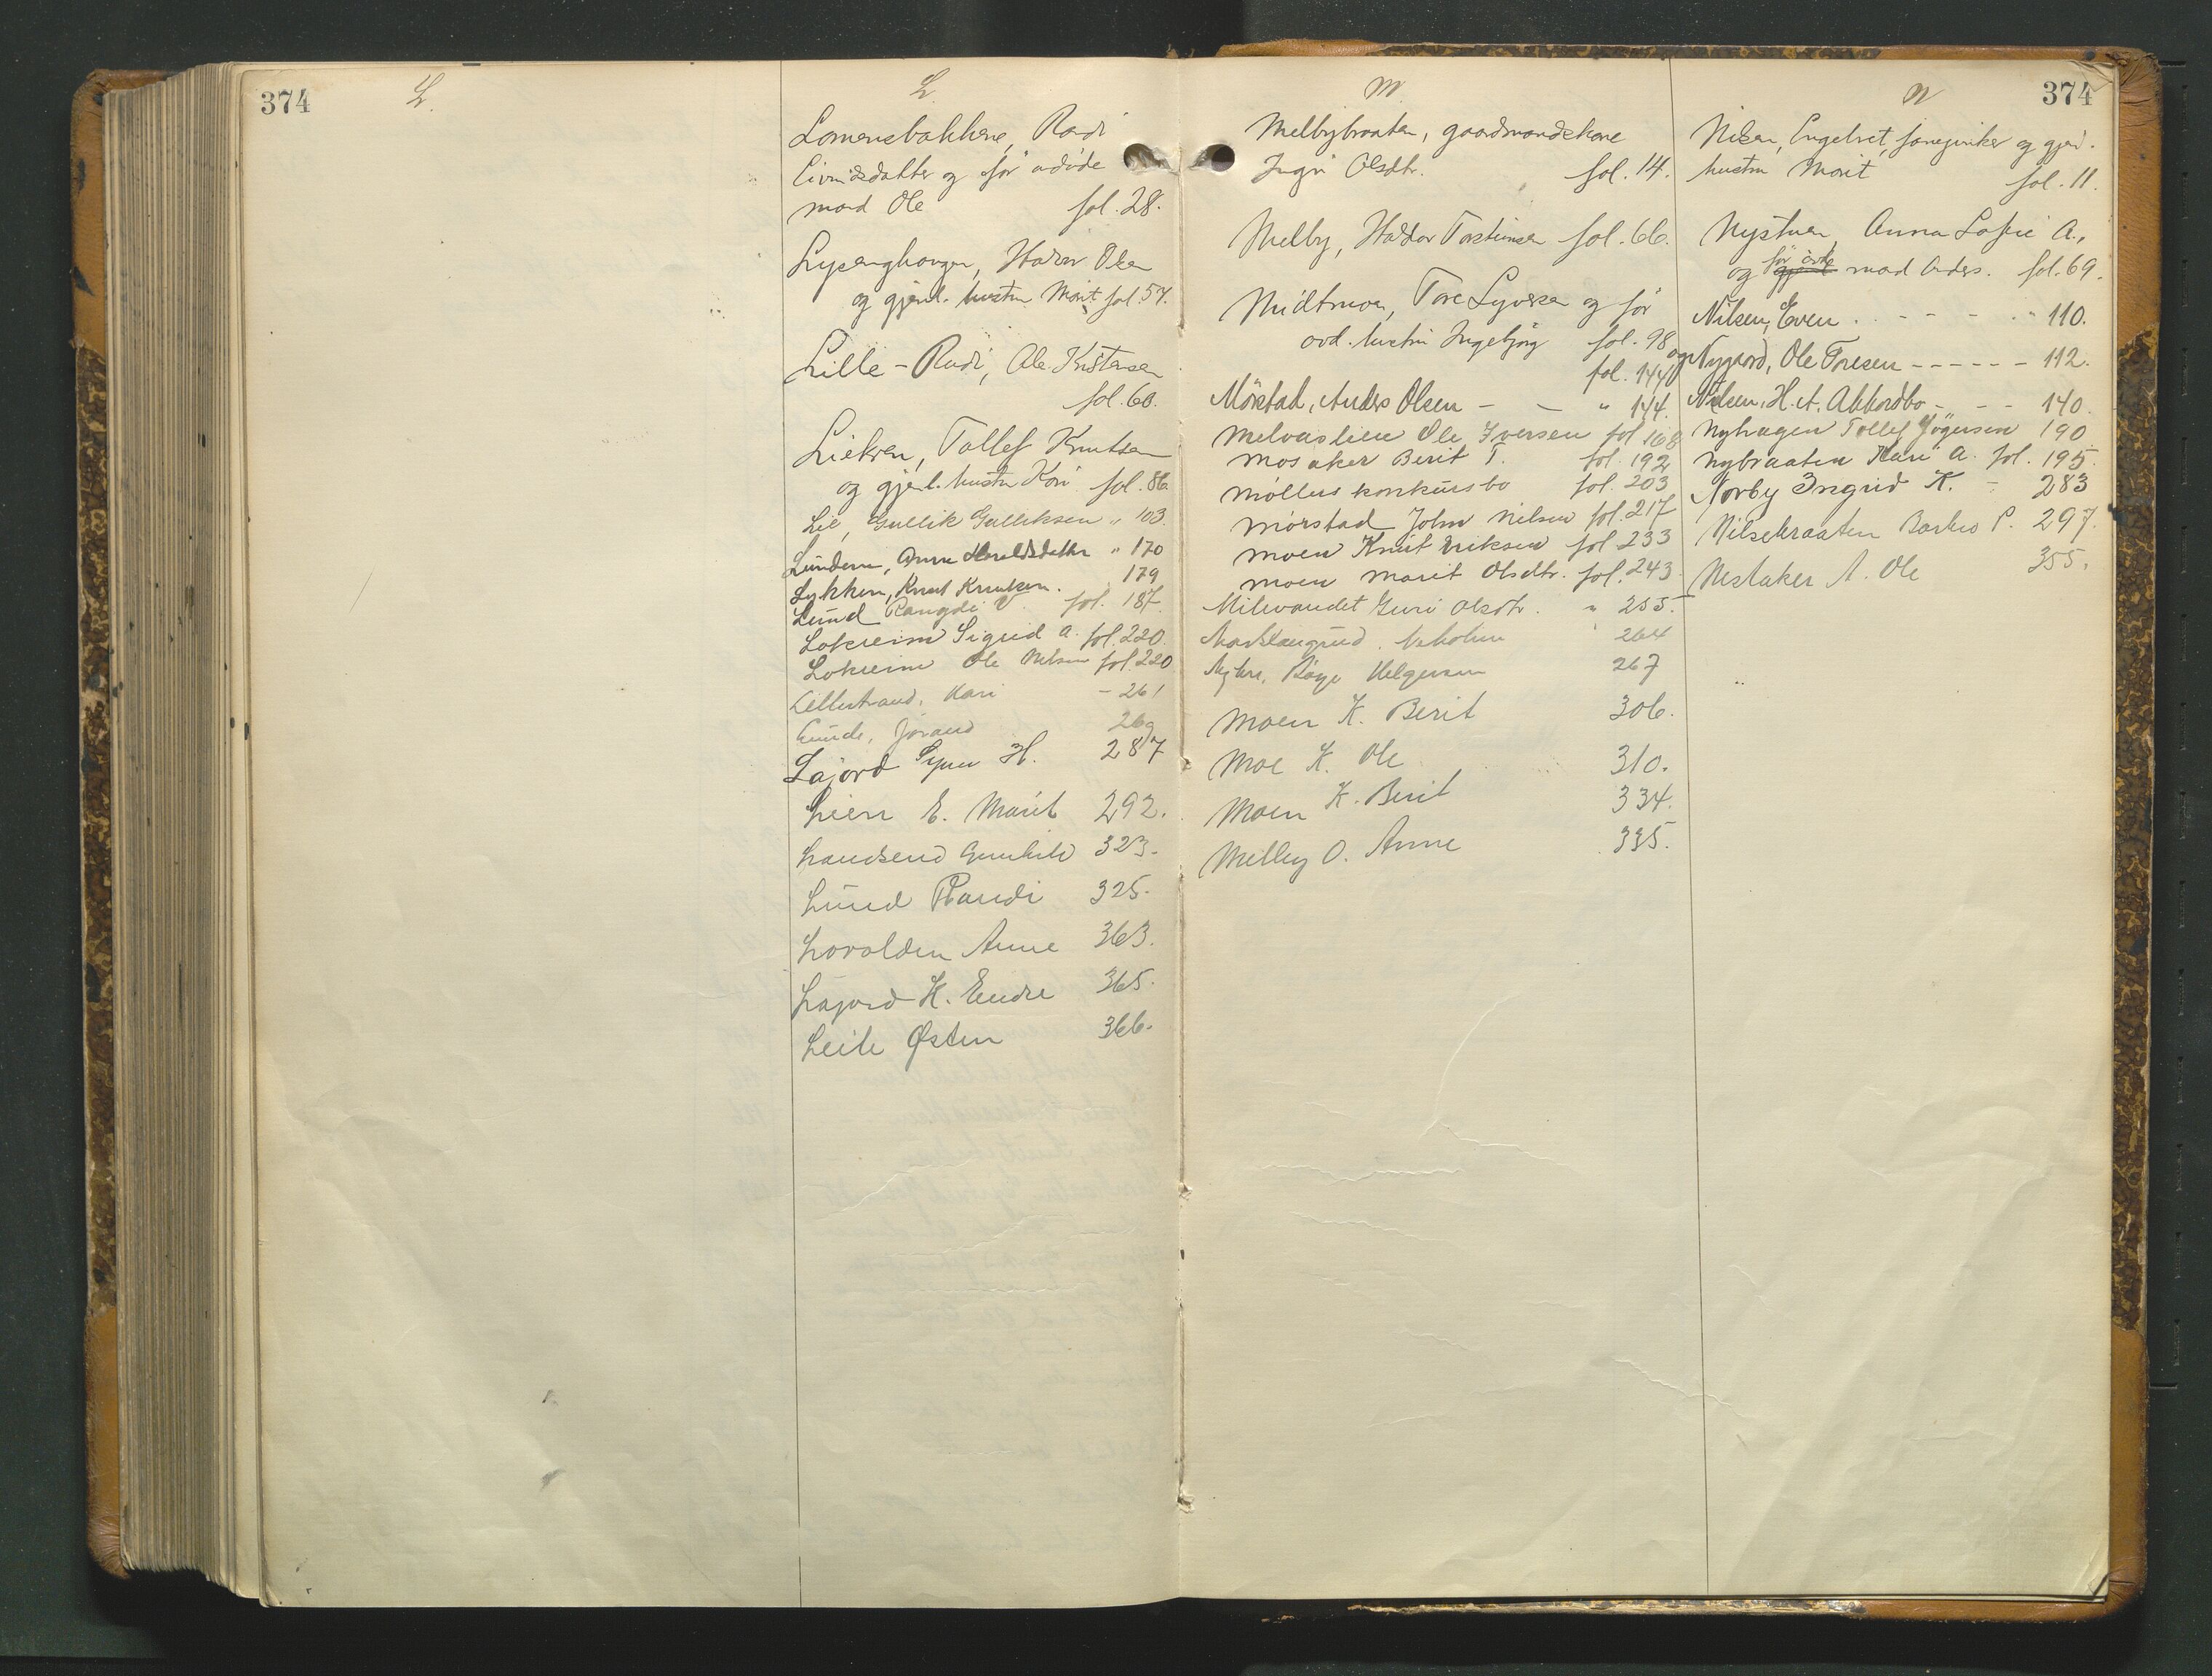 374
L.
L.
Lomensbakkene, Randi
Eivindsdatter og før avdøde
mand Ole fol. 28.
Lysenghaugen, Halvor Olsen
og gjenl. hustru Marit fol. 57.
Lille-Rudi, Ole Kristensen
fol. 60.
Liekren, Tollef Knutsen
og gjenl. hustru Kari fol. 86
Lie, Gullik Gulliksen " 103.
Lundene, Anne Haraldsdatter " 170
Lykken, Knut Knutsen. 179
Lund Rangdi V. fol. 187.
Lokreim Sigrid A. fol. 220.
Lokreim Ole Nilsen fol. 220
Lillestrand, Kari - 261
Lunde, Jörand 269
Lajord Syver H. 287
Lien E. Marit 292.
Landsend Gunhild 323.
Lund Randi 325.
Lovolden Anne 363.
Lajord H. Endre 365.
Leite Østen 366.
M.
Melbybraaten, gaardmandskone
Ingri Olsdtr. fol. 14.
Melby, Haldor Torsteinsen fol. 66.
Midtmoen, Tore Syversen og før
avd. hustru Ingebjørg fol. 98 og
fol. 144
Mörstad, Anders Olsen - - " 144.
Melvaslien Ole Iversen fol 168
Mosaker Berit T. fol. 192
Møllers konkursbo fol. 203
Mörstad John Nilsen fol. 217
Moen Knut Eriksen fol 233
Moen Marit Olsdtr. fol. 243
Milevandet Guri Olsdtr. " 255.
264
Myhre, Böye Helgesen 267
Moen K. Berit 306.
Moe K. Ole 310.
Moen K. Berit 334.
Melby O. Anne 335.
N
374
Nilsen, Engebret, og gjenl.
hustru Marit fol. 11.
Nystuen, Anna Sofie A.,
og før avde gjenl mand Anders. fol. 69.
Nilsen, Even . - - - . " 110.
Nygaard, Ole Toresen - - - - - 112.
Nilsen, H. A. Akkordbo - - - 140.
Nyhagen Tollef Jögersen 190
Nybraaten Kari A. fol. 195.
Norby Ingrid K. - 283
Nilsebraaten Barbro P. 297.
Nestaker A. Ole 355.